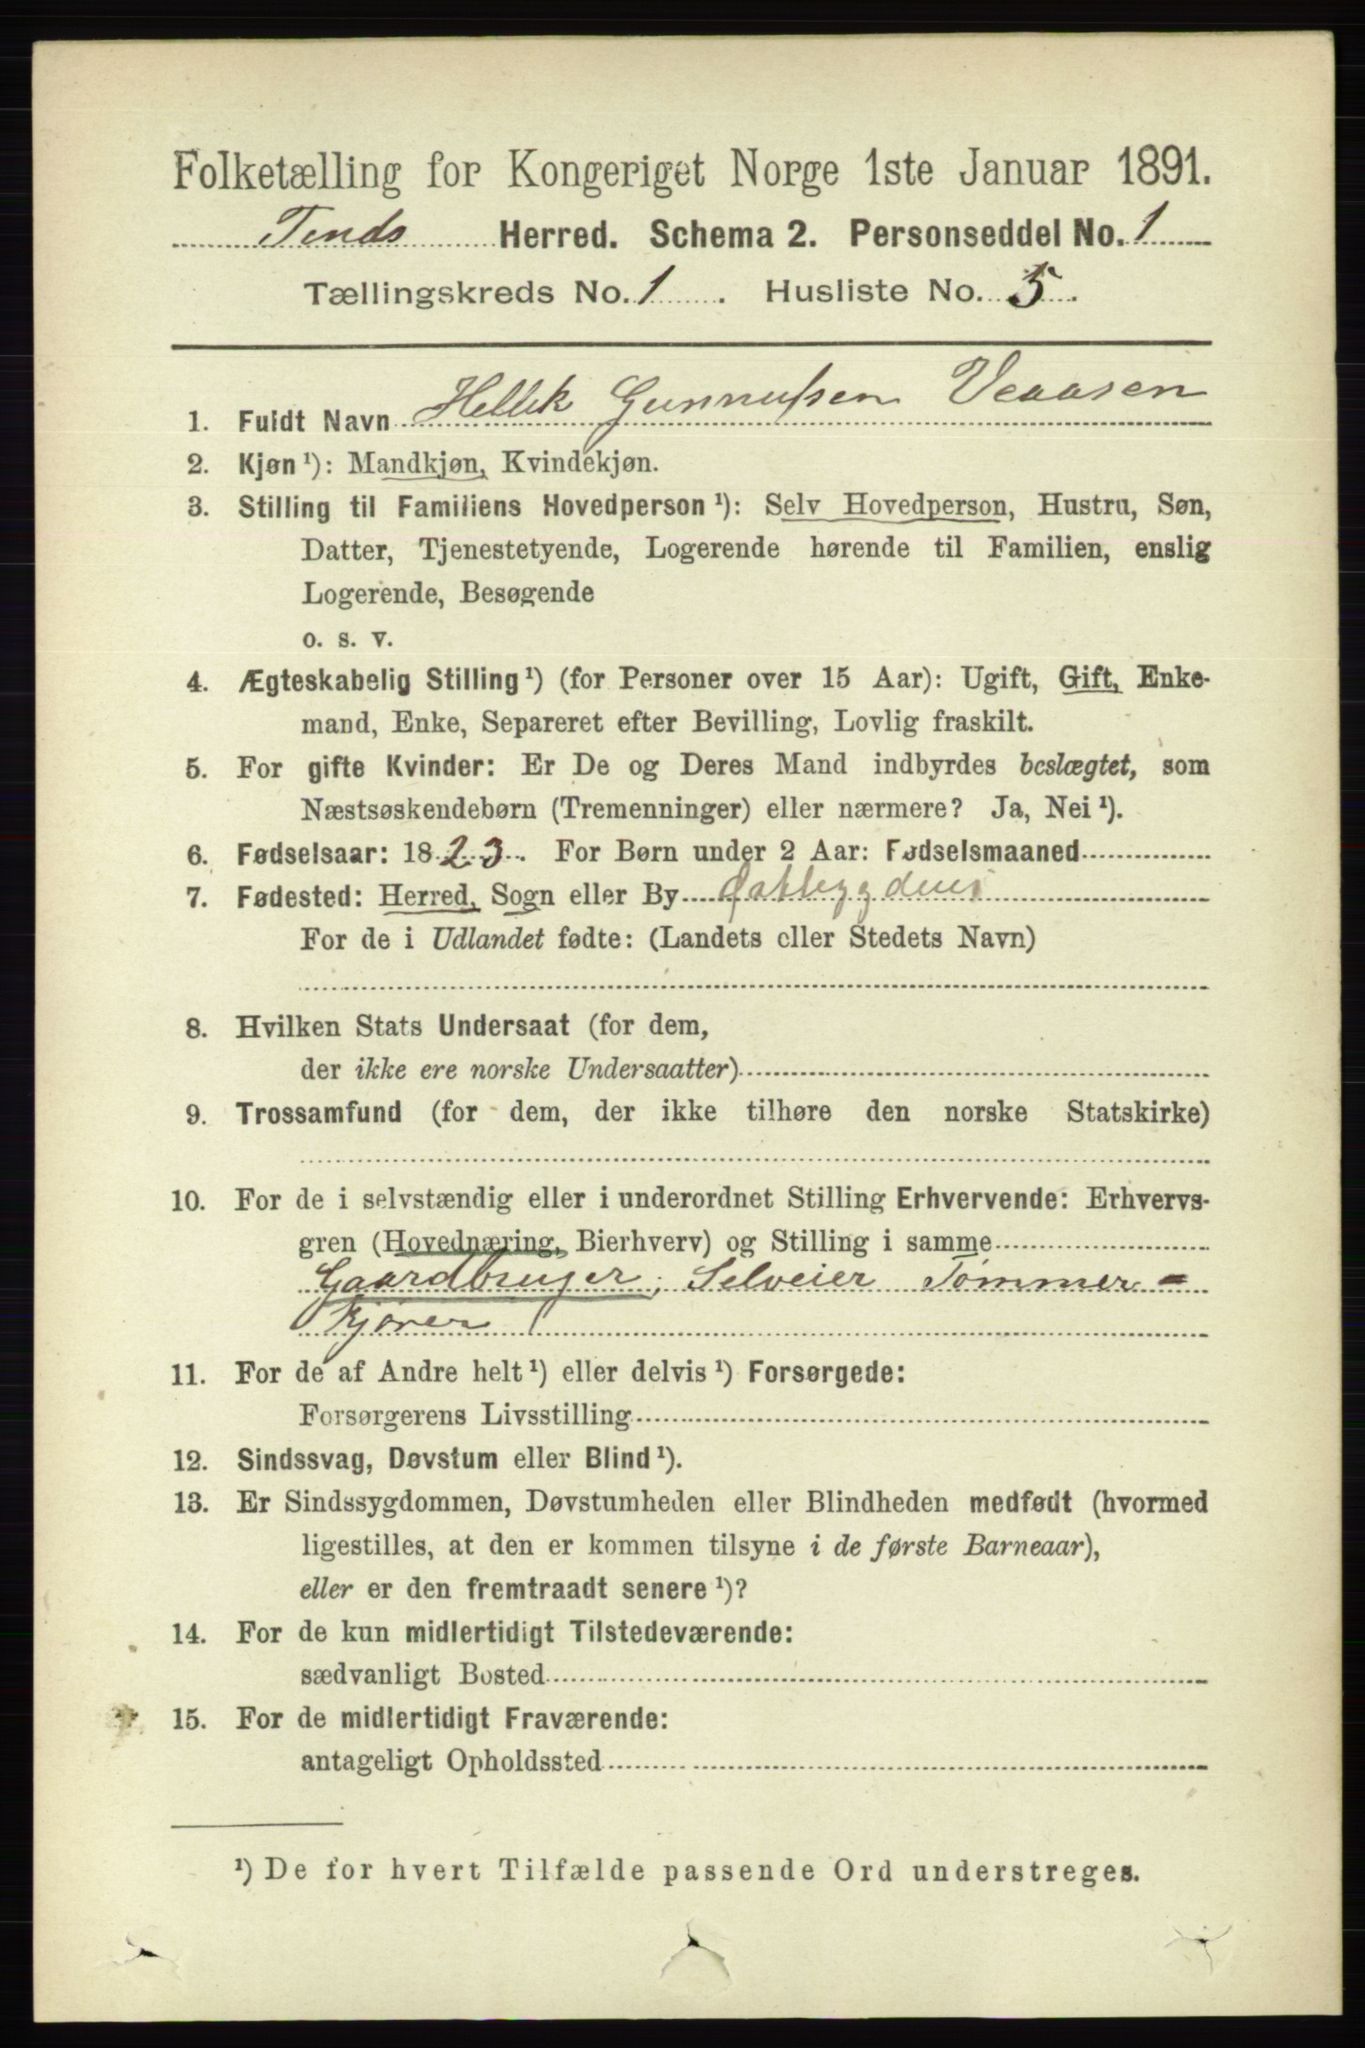 Folketælling for Kongeriget Norge 1ste Januar 1891.
Tinds Herred. Schema 2. Personseddel No. 1
Tællingskreds No. 1. Husliste No. 5.
1. Fuldt Navn Hellek Gunnulsen Veaasen
2. Kjøn ¹): Mandkjøn, Kvindekjøn.
3. Stilling til Familiens Hovedperson ¹): Selv Hovedperson, Hustru, Søn,
Datter, Tjenestetyende, Logerende hørende til Familien, enslig
Logerende, Besøgende
o. s. v.
4. Ægteskabelig Stilling ¹) (for Personer over 15 Aar): Ugift, Gift, Enke-
mand, Enke, Separeret efter Bevilling, Lovlig fraskilt.
5. For gifte Kvinder: Er De og Deres Mand indbyrdes beslægtet, som
Næstsøskendebørn (Tremenninger) eller nærmere? Ja, Nei ¹).
6. Fødselsaar: 1823. For Børn under 2 Aar: Fødselsmaaned
7. Fødested: Herred, Sogn eller By
For de i Udlandet fødte: (Landets eller Stedets Navn)
8. Hvilken Stats Undersaat (for dem,
der ikke ere norske Undersaatter)
9. Trossamfund (for dem, der ikke tilhøre den norske Statskirke)
10. For de i selvstændig eller i underordnet Stilling Erhvervende: Erhvervs-
gren (Hovednæring, Bierhverv) og Stilling i samme
Gaardbruger, Selveier Tømmer=
kjører
11. For de af Andre helt ¹) eller delvis ¹) Forsørgede:
Forsørgerens Livsstilling
12. Sindssvag, Døvstum eller Blind ¹).
13. Er Sindssygdommen, Døvstumheden eller Blindheden medfødt (hvormed
ligestilles, at den er kommen tilsyne i de første Barneaar),
eller er den fremtraadt senere ¹)?
14. For de kun midlertidigt Tilstedeværende:
sædvanligt Bosted
15. For de midlertidigt Fraværende:
antageligt Opholdssted
¹) De for hvert Tilfælde passende Ord understreges.